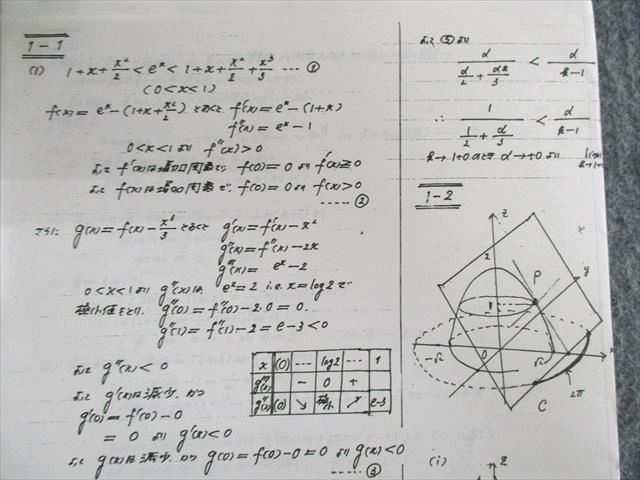 1-1
(1) 1+x+x²/2 < eˣ < 1+x+x²/2+x³/3 ---- ①
(0<x<1)
f(x)=eˣ-(1+x+x²/2) とおくと f'(x)=eˣ-(1+x)
f''(x)=eˣ-1
0<x<1より f''(x)>0
よって f'(x)は増加関数で f'(0)=0より f'(x)≧0
よって f(x)は増加関数で. f(0)=0より f(x)>0
----- ②
さらに g(x)=f(x)-x³/3 とおくと g'(x)=f'(x)-x²
g''(x)=f''(x)-2x
g'''(x)=eˣ-2
0<x<1より g''(x)は eˣ=2 i.e. x=log2 で
極小値をとり. g''(0)=f''(0)-2・0=0.
g''(1)=f''(1)-2=e-3<0
よって g''(x)<0
よって g'(x)は減少. から
g'(0)=f'(0)-0
=0 より g'(x)<0
よって g(x)は減少. から g(0)=f(0)-0=0 より g(x)<0
----- ③
x (0) --- log2 --- 1
g'''(x) - 0 +
g''(x) (0) ↘ 極小 ↗ e-3
よって ⑤より
α/(α/2+α²/3) < α/(k-1)
∴ 1/(1/2+α/3) < α/(k-1)
k→1+0のとき α→+0より lim
k→1+
1-2
z
2
P
y
1
-√2
0
√2
x
C
2π
(i)
z